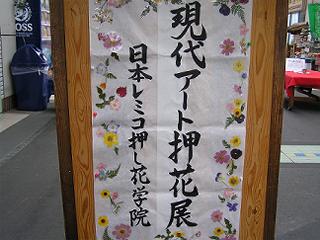 現代アート押花展
日本レミコ押し花学院
BOSS